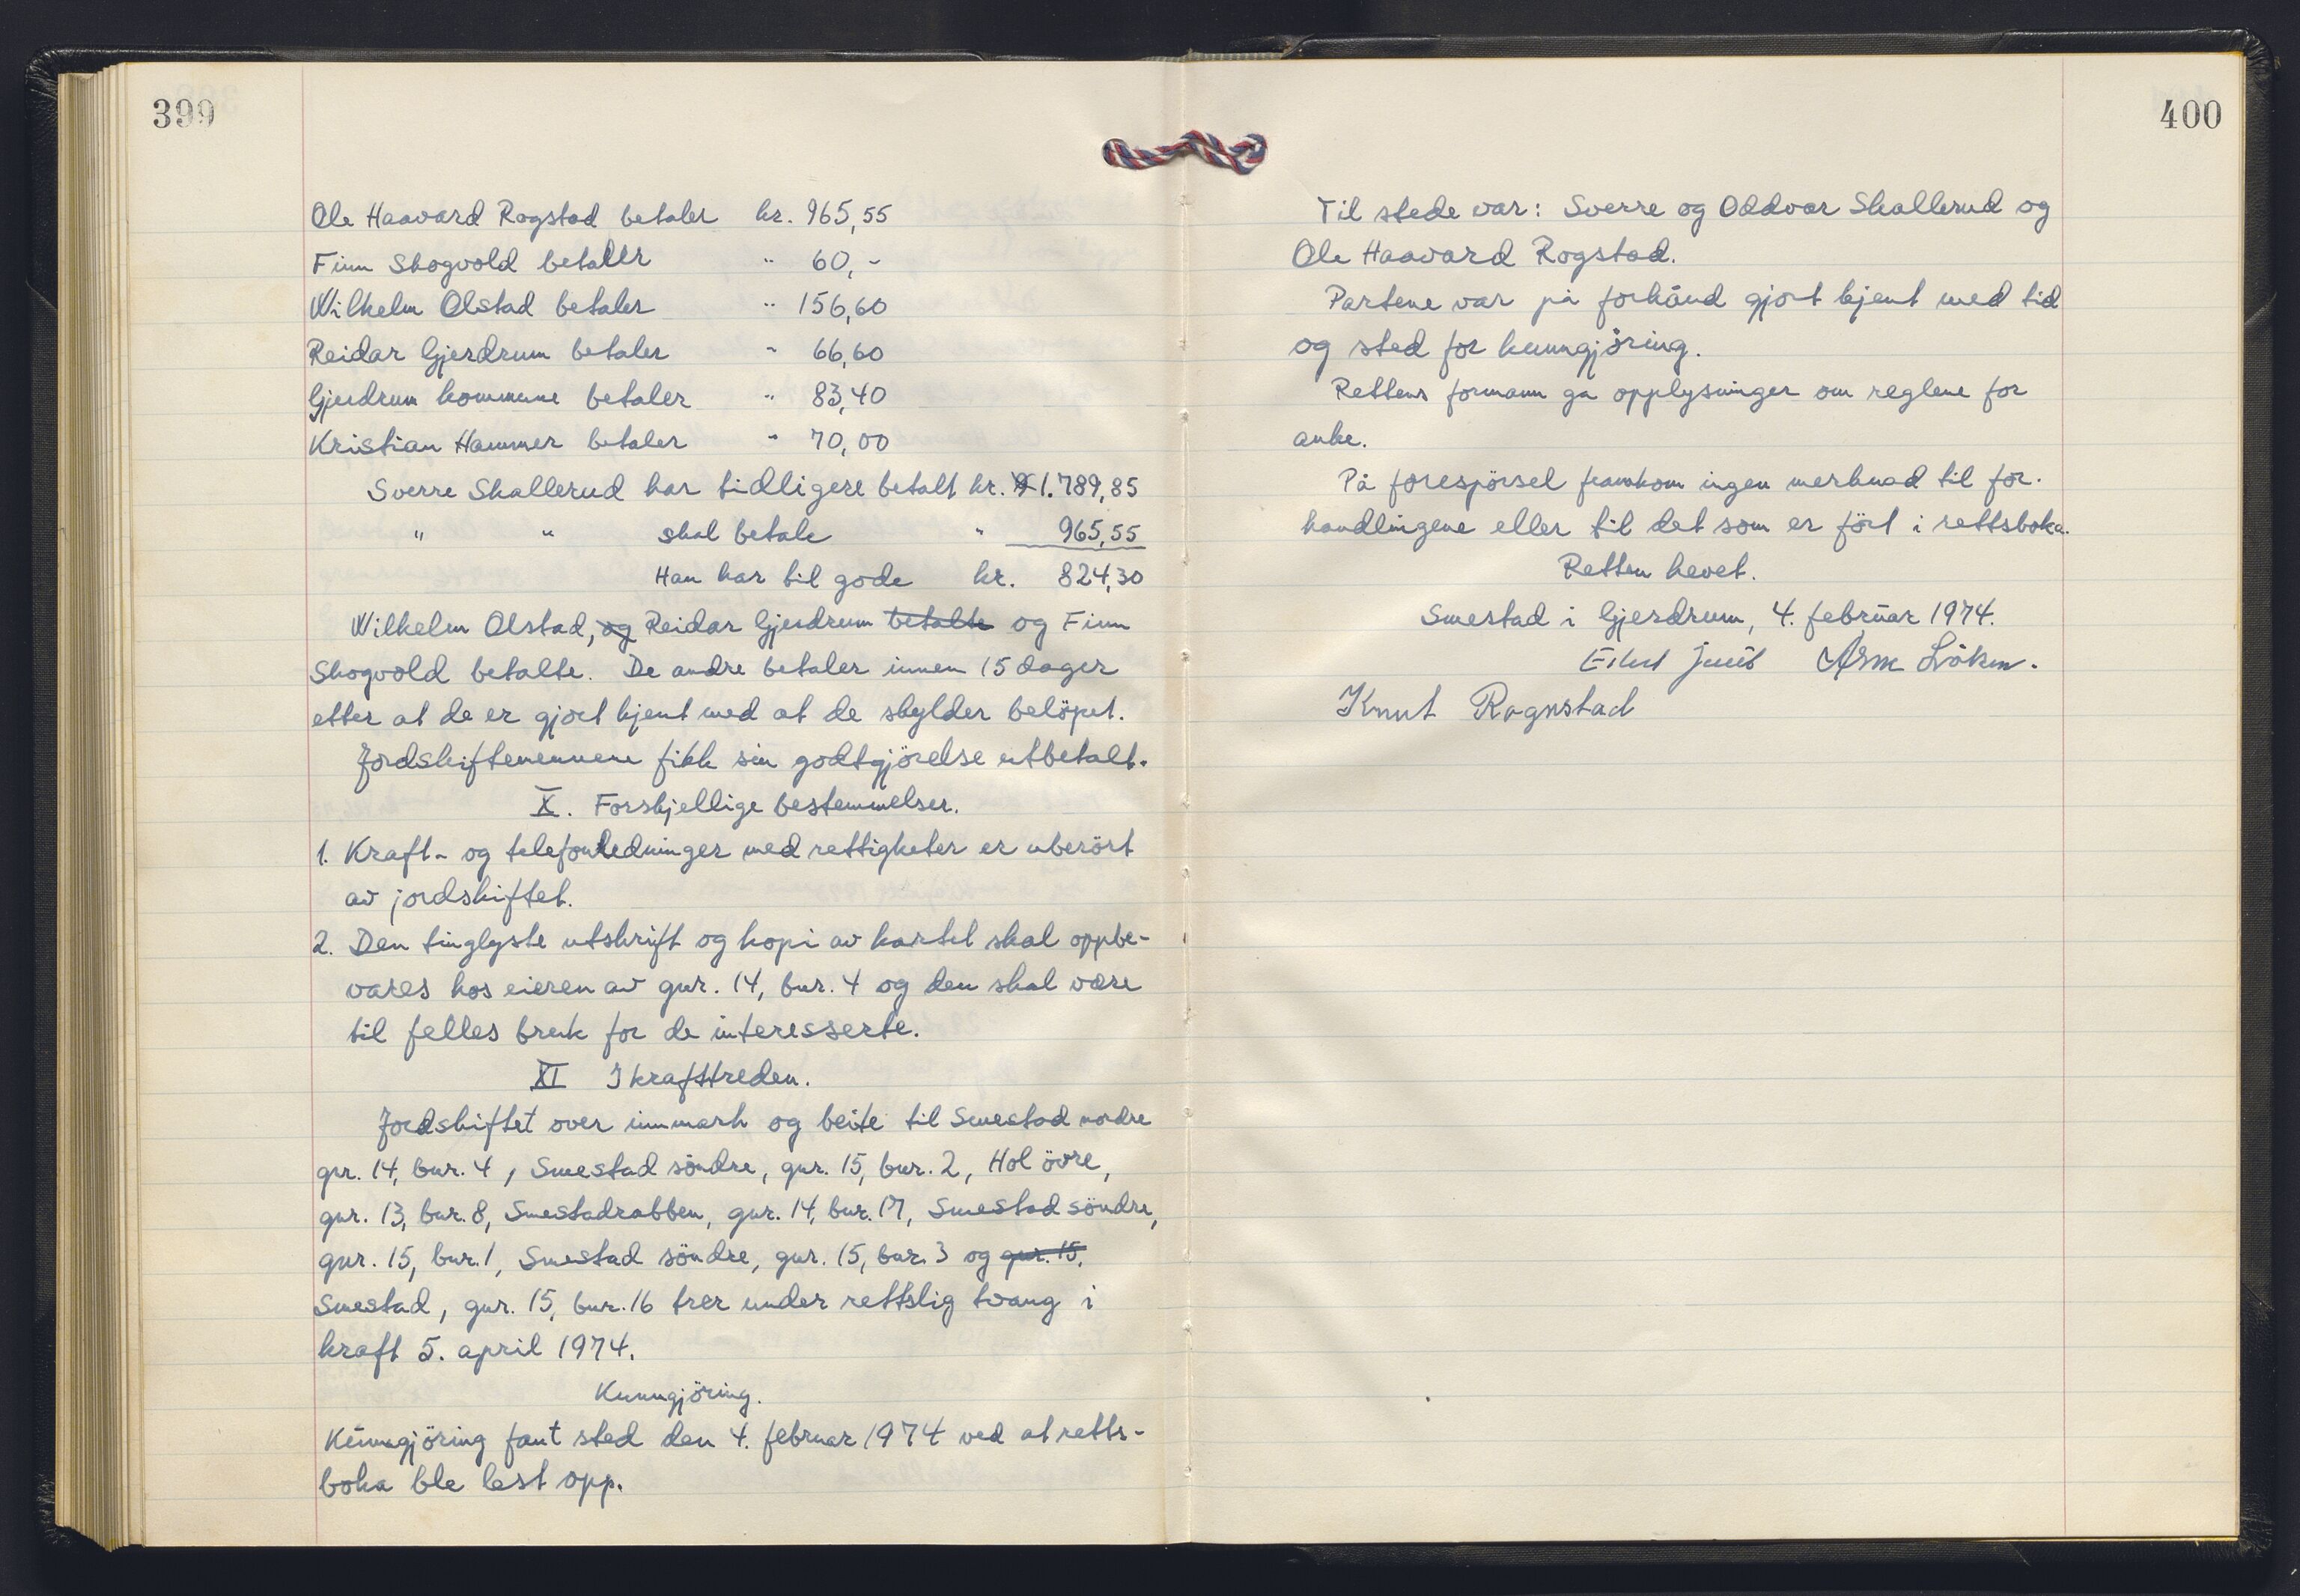 399
Ole Haavard Rogstad betaler kr. 965,55
Finn Skogvold betaler " 60,-
Wilhelm Olstad betaler " 156,60
Reidar Gjerdrum betaler " 66,60
Gjerdrum kommune betaler " 83,40
Kristian Hammer betaler " 70,00
Sverre Skallerud har tidligere betalt kr. 1.789,85
" " skal betale " 965,55
Han har til gode kr. 824,30
Wilhelm Olstad, og Reidar Gjerdrum betalte og Finn
Skogvold betalte. De andre betaler innen 15 dager
etter at de er gjort kjent med at de skylder belöpet.
Jordskiftemennene fikk sin godtgjörelse utbetalt.
X. Forskjellige bestemmelser.
1. Kraft- og telefonledninger med rettigheter er uberört
av jordskiftet.
2. Den tinglyste utskrift og kopi av kartet skal oppbe-
vares hos eieren av gnr. 14, bnr. 4 og den skal være
til felles bruk for de interesserte.
XI Ikrafttreden.
Jordskiftet over innmark og beite til Smestad nordre
gnr. 14, bnr. 4, Smestad söndre, gnr. 15, bnr. 2, Hol övre,
gnr. 13, bnr. 8, Smestadrabben, gnr. 14, bnr. 17, Smestad söndre,
gnr. 15, bnr. 1, Smestad söndre, gnr. 15, bnr. 3 og gnr. 15,
Smestad, gnr. 15, bnr. 16 trer under rettslig tvang i
kraft 5. april 1974.
Kunngjöring.
Kunngjöring fant sted den 4. februar 1974 ved at retts-
boka ble lest opp.
400
Til stede var: Sverre og Oddvar Skallerud og
Ole Haavard Rogstad.
Partene var på forhånd gjort kjent med tid
og sted for kunngjöring.
Rettens formann ga opplysninger om reglene for
anke.
På forespörsel framkom ingen merknad til for-
handlingene eller til det som er fört i rettsboka.
Retten hevet.
Smestad i Gjerdrum, 4. februar 1974.
Arne Löken.
Knut Rognstad